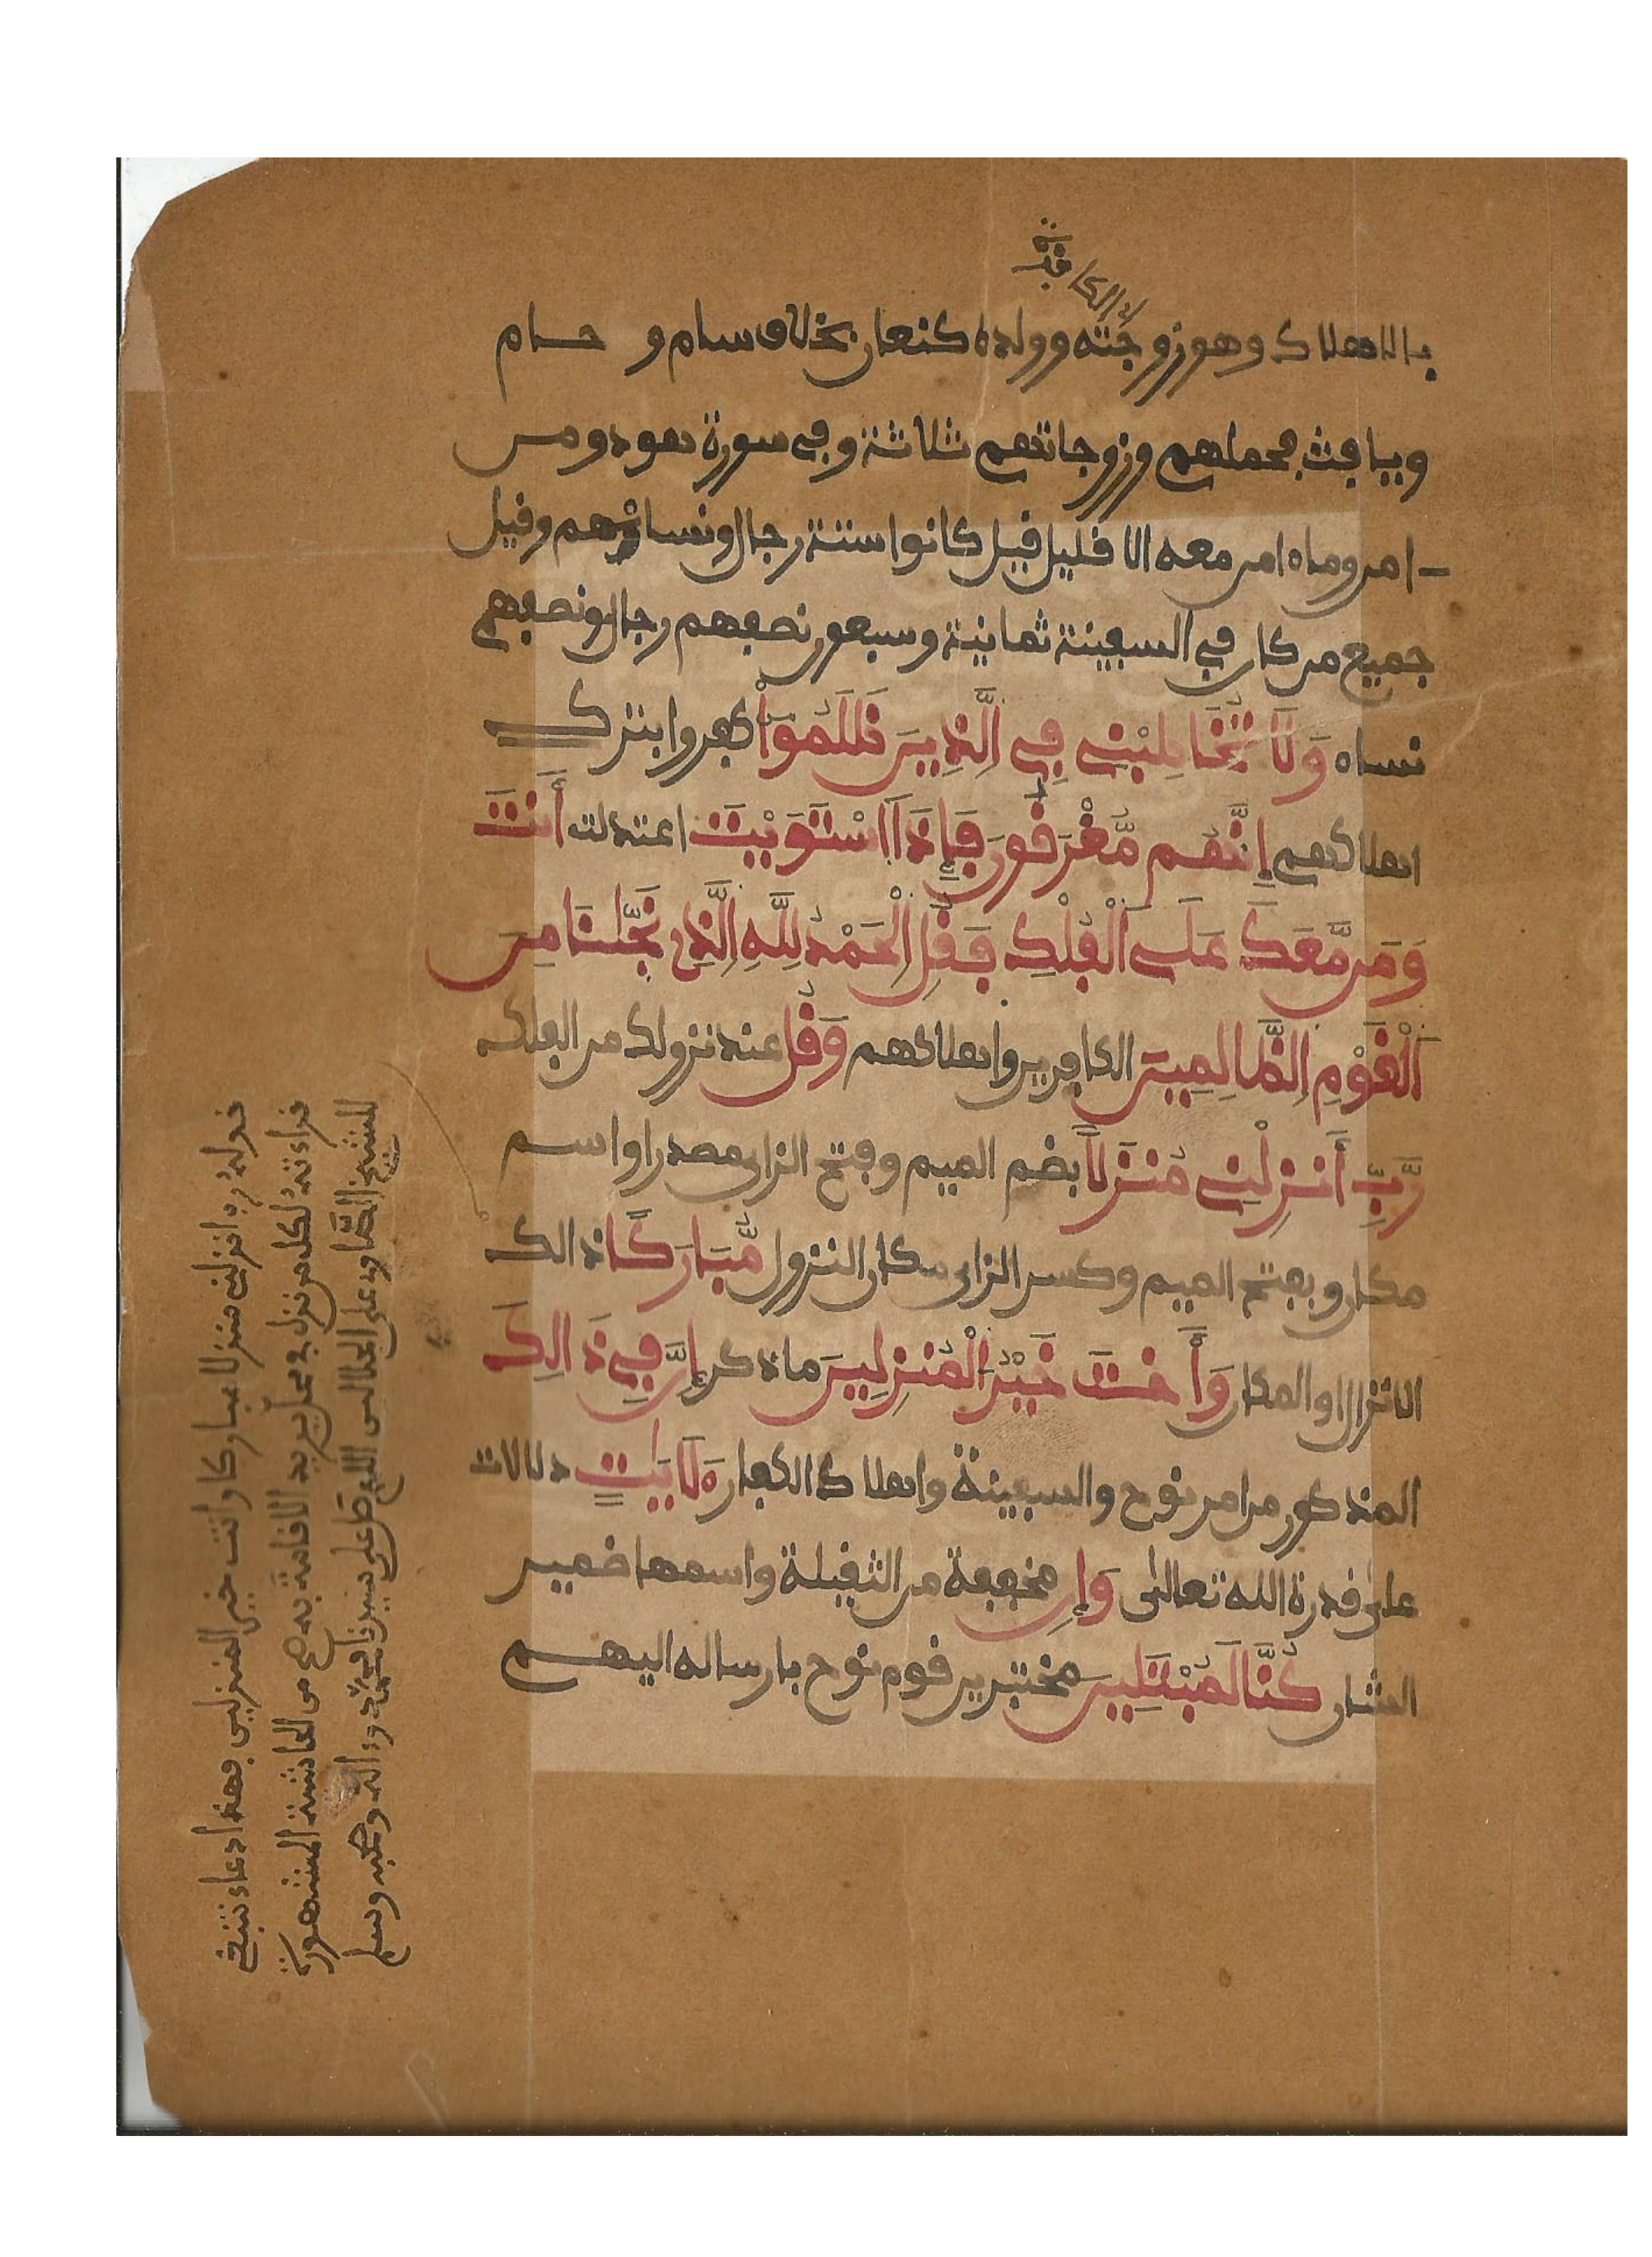 اي الكافرة
بالاهلاك وهو زوجته وولده كنعان بخلاف سام و حام
ويافث فحملهم وزوجاتهم ثلاثة وفي سورة هود ومن
امن وما امن معه الا قليل قيل كانوا ستة رجال ونساؤهم وقيل
جميع من كان في السفينة ثمانية وسبعون نصفهم رجال ونصفهم
نساء وَلَا تُخَاطِبْنِي فِي اِلَّذِينَ ظَلَمُوٓاْ كفروا بترك
اهلاكهم إِنَّهُم مُّغْرَقُونَ فَإِذَا اَسْتَوَيْتَ اعتدلت أَنتَ
وَمَن مَّعَكَ عَلَى اَلْفُلْكِ فَقُلِ اِلْحَمْدُ لِلهِ اِلَّذِي نَجَّىٰنَا مِنَ
اَلْقَوْمِ اِلظَّالِمِينَ الكافرين واهلاكهم وَقُل عند نزولك من الفلك
رَّبِّ أَنزِلْنِي مُنزَلًا بضم الميم وفتح الزاي مصدر او اسم
مكان وبفتح الميم وكسر الزاي مكان النزول مُّبَارَكًا ذالك
الانزال او المكان وَأَنتَ خَيْرُ اَلْمُنزِلِينَ ما ذكر إِنَّ فِي ذَالِكَ
المذكور من امر نوح والسفينة واهلاك الكفار لَأَيَٰتٍ دلالات
على قدرة الله تعالى وَإِن مخففة من الثقيلة واسمها ضمير
الشان كُنَّا لَمُبْتَلِينَ مختبرين قوم نوح بارساله اليهم
قوله رب انزلني منزلا مباركا وانت خير المنزلين فهذا دعاء
قراءته لكل من نزل في محل يريد الاقامة به من الحاشية المشهورة
للشيخ الصاوي على الجلالين اللهم صل على سيدنا محمد وءاله وصحبه وسلم